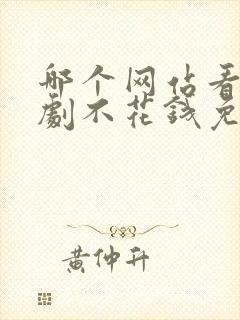 哪个网站看
劇不花钱免
黄仲升